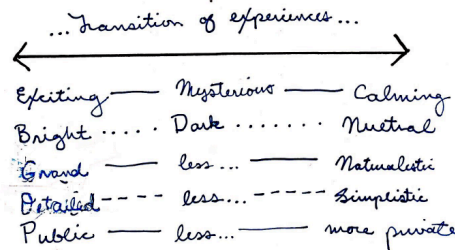 ...Transition of experiences...
Exciting —— Mysterious —— Calming
Bright ..... Dark ....... Nuetral
Grand —— less... —— Naturalestic
Detailed ---- less... ----- Simplistic
Public —— less... —— more private